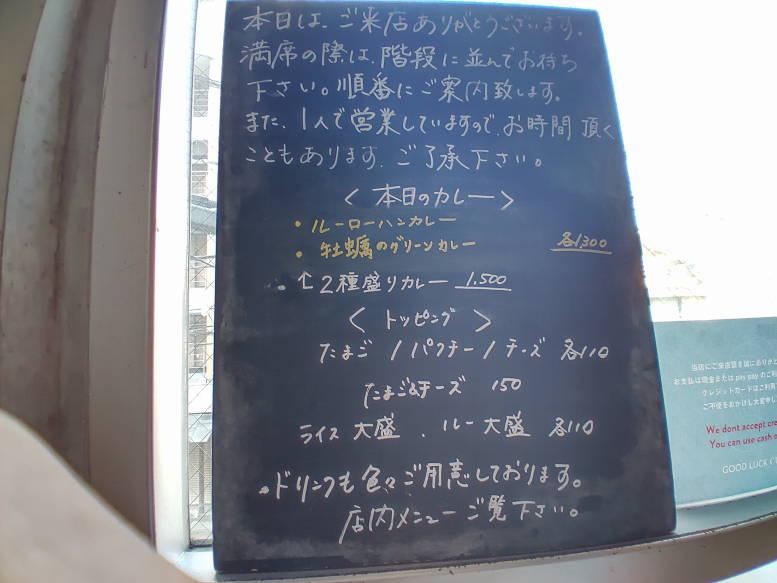 本日は、ご来店ありがとうございます。
満席の際は、階段に並んでお待ち
下さい。順番にご案内致します。
また、1人で営業していますので、お時間頂く
こともあります、ご了承下さい。
〈本日のカレー〉
・ルーローハンカレー
・牡蠣のグリーンカレー 各1300
・↑2種盛りカレー 1.500
〈トッピング〉
たまご/パクチー/チーズ 各110
たまご&チーズ 150
ライス大盛、ルー大盛 各110
・ドリンクも色々ご用意しております。
店内メニューご覧下さい。
当店にご来店頂き誠にありがと
お支払は現金またはpay payのご利
クレジットカードはご利用
ご不便をおかけし大変申し
We dont accept cre
You can use cash o
GOOD LUCK C